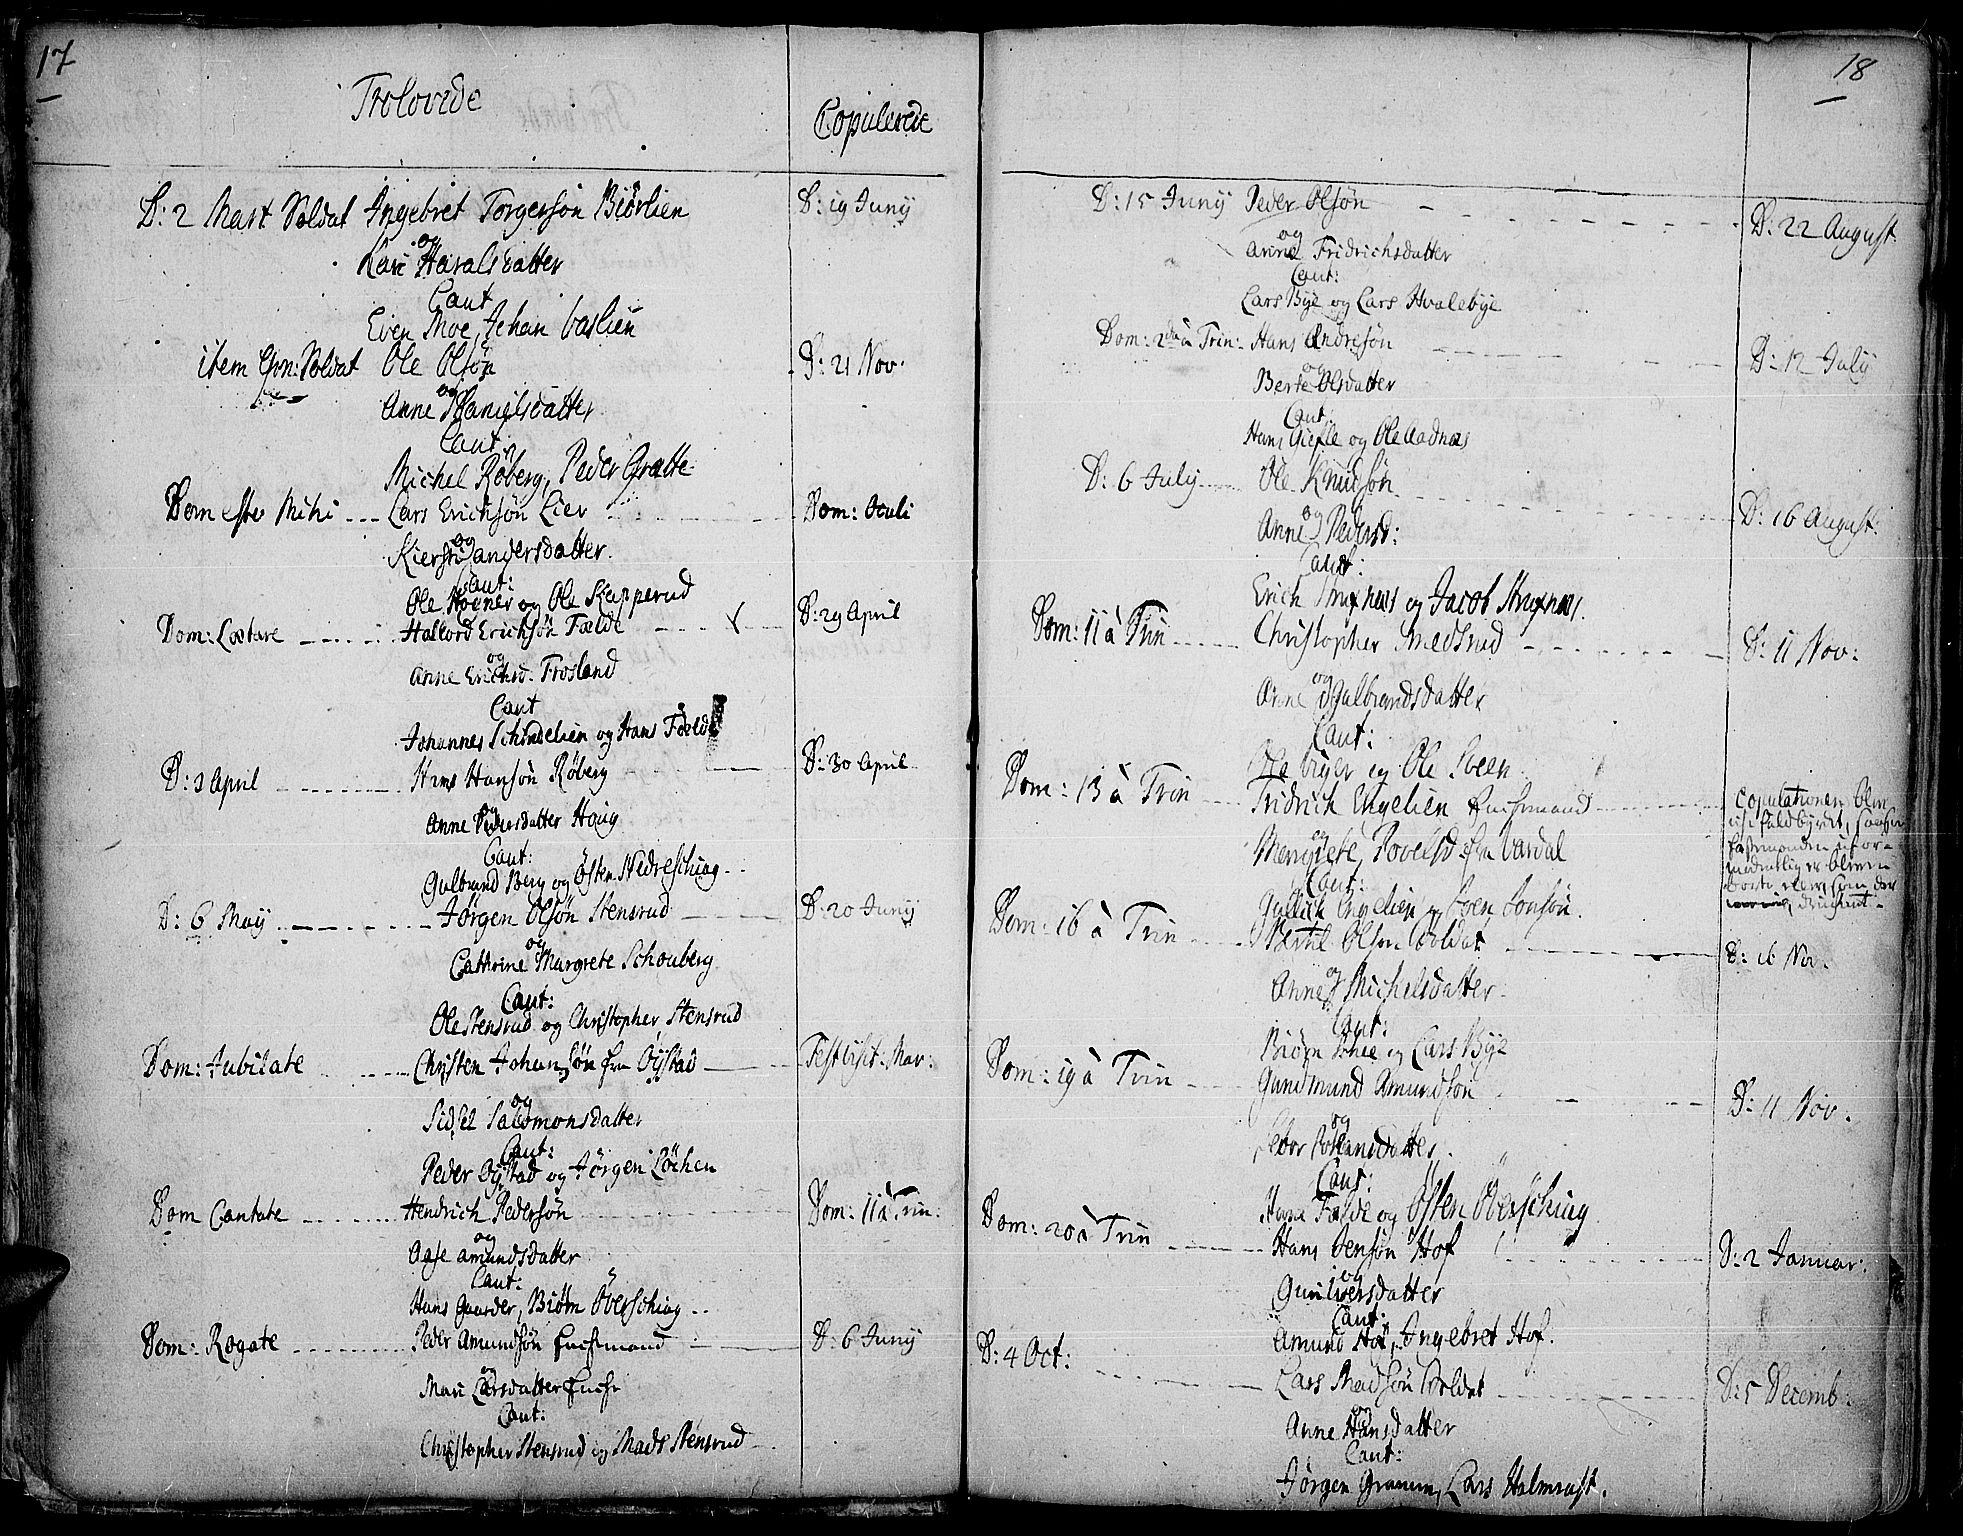 17
Trolovede
Copulerede
D: 2 Mart Soldat Ingebret Torgersøn Biørlien D: 19 Junij
og
Kari Haralsdatter
Caut
Even Moe, Johan Vaslien
item Soldat Ole Olsøn D: 21 Nov.
og
Anne Danielsdatter
Caut
Michel Røberg, Peder Grætte
Dom esto Mihi Lars Erichsøn Lier Dom: Oculi
og
Kiersti andersdatter.
Caut:
Ole Høgner og Ole Kapperud
Dom: Lætare Hallord Erichsøn Fælde D: 29 April
og
Anne Erichsd. Frosland
Caut
Johannes Schindelien og Hans Fælde
D: 3 April Hans Hansøn Røberg D: 30 April
og
Anne Pedersdatter Houg
Caut:
Gulbrand Berg og Østen Nedresching
D: 6 Maij Jørgen Olsøn Stensrud D: 20 Junij
og
Cathrine Margrete Schouberg
Caut:
Ole Stensrud og Christopher Stensrud
Dom: Jubilate Christen Johansøn fra Øystad Fest Visit: Mar:
og
Sidsel Salomonsdatter
Caut:
Peder Øystad og Jørgen Løchen
Dom Cantate Hendrich Pedersøn Dom: 11 à Trin:
og
Aase amundsdatter
Caut:
Hans Gaarder, Biørn Øversching
Dom: Rogate Peder Amundsøn Enchemand D: 6 Junij
og
Mari Larsdatter Enche
Caut:
Christopher Stensrud og Mads Stensrud
18
D: 15 Junij Peder Olsøn D: 22 August
og
Anne Fridrichsdatter
Caut:
Lars Bye og Lars Hvalebye
Dom: 2da à Trin: Hans Andersøn D: 12 Julij
og
Berte Olsdatter
Caut:
Hans Giefle og Ole Aadnæs
D: 6 Julij Ole Knudsøn D: 16 August:
og
Anne Pedersd:
Caut:
Erich Struxnæs og Jacob Struxnæs.
Dom: 11 à Trin Christopher Smedsrud D: 11 Nov:
og
Anne Gulbrandsdatter
Caut:
Ole og Ole Sveen
Dom: 13 à Trin Fridrich Engelien Enchemand Copulationen blev
og ei fuldbyrdet, saasom
Margrete Povelsd: fra Vardal
Caut:
Gullich Engelien og Even Jonsøn.
Dom: 16 à Trin Olsøn Soldat D: 16 Nov.
og
Anne Michelsdatter
Caut:
Biørn og Lars Bye
Dom: 19 à Trin Gundmund Amundsøn D: 11 Nov.
og
Caut:
Hans Fælde og Østen Øversching
Dom: 20 à Trin Hans Jensøn Hof D: 2 Januar:
og
Gunil Iversdatter
Caut:
Amund Hof, Ingebret Hof.
D: 4 Oct: Lars Madsøn Soldat D: 5 Decemb.
og
Anne Hansdatter
Caut:
Jørgen Granum, Lars Halmrast.